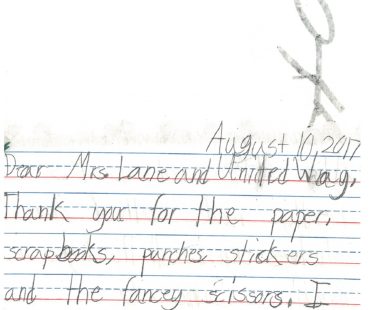 August 10, 2017
Dear Mrs. Lane and United Way,
Thank you for the paper,
scrapbooks, punches, stickers
and the fancey scissors. I